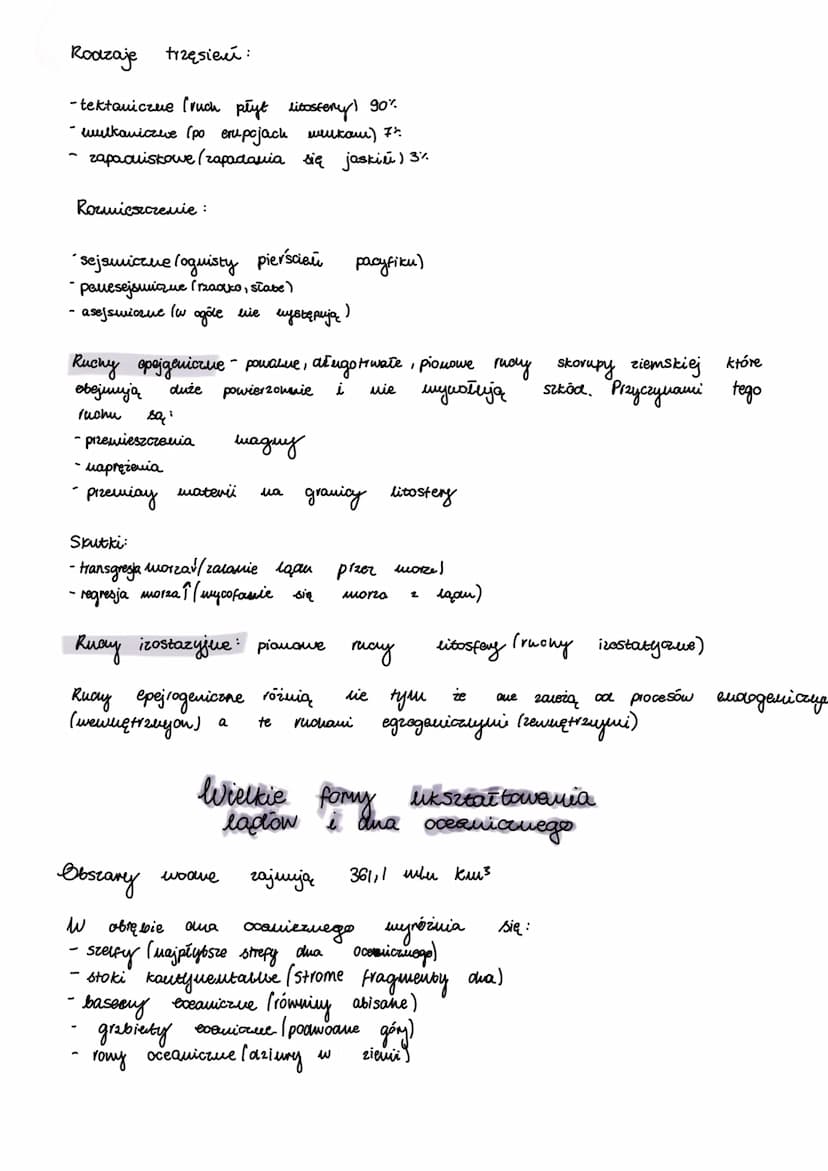 Rodzaje trzęsień:
- tektoniczne (ruch płyt litosfery) 90%
- wulkaniczne (po erupcjach wulkanu) 7%
- zapadliskowe (zapadania się jaskiń) 3%
Rozmieszczenie:
- sejsmiczne (ognisty pierścień pacyfiku)
- penesejsmiczne (rzadko, słabe)
- asejsmiczne (w ogóle nie występują)
Ruchy epejgeniczne - powolne, długotrwałe, pionowe ruchy skorupy ziemskiej które
obejmują duże powierzchnie i nie wywołują szkód. Przyczynami tego
ruchu są:
- przemieszczenia magmy
- naprężenia
- przemiany materii na granicy litosfery
Skutki:
- transgresja morza↓(zalanie lądu przez morze)
- regresja morza↑(wycofanie się morza z lądu)
Ruchy izostazyjne: pionowe ruchy litosfery (ruchy izostatyczne)
Ruchy epejrogeniczne różnią sie tym że one zależą od procesów endogeniczny
(wewnętrznych) a te ruchami egzogenicznymi (zewnętrznymi)
Wielkie formy ukształtowania
lądów i dna oceanicznego
Obszary wodne zajmują 361,1 mln km³
W obrębie dna oceanicznego wyróżnia się:
- szelfy (najpłytsze strefy dna oceanicznego)
- stoki kontynentalne (strome fragmenty dna)
- baseny oceaniczne (równiny abisalne)
- grzbiety oceaniczne (podwodne góry)
- rowy oceaniczne (dziury w ziemi)